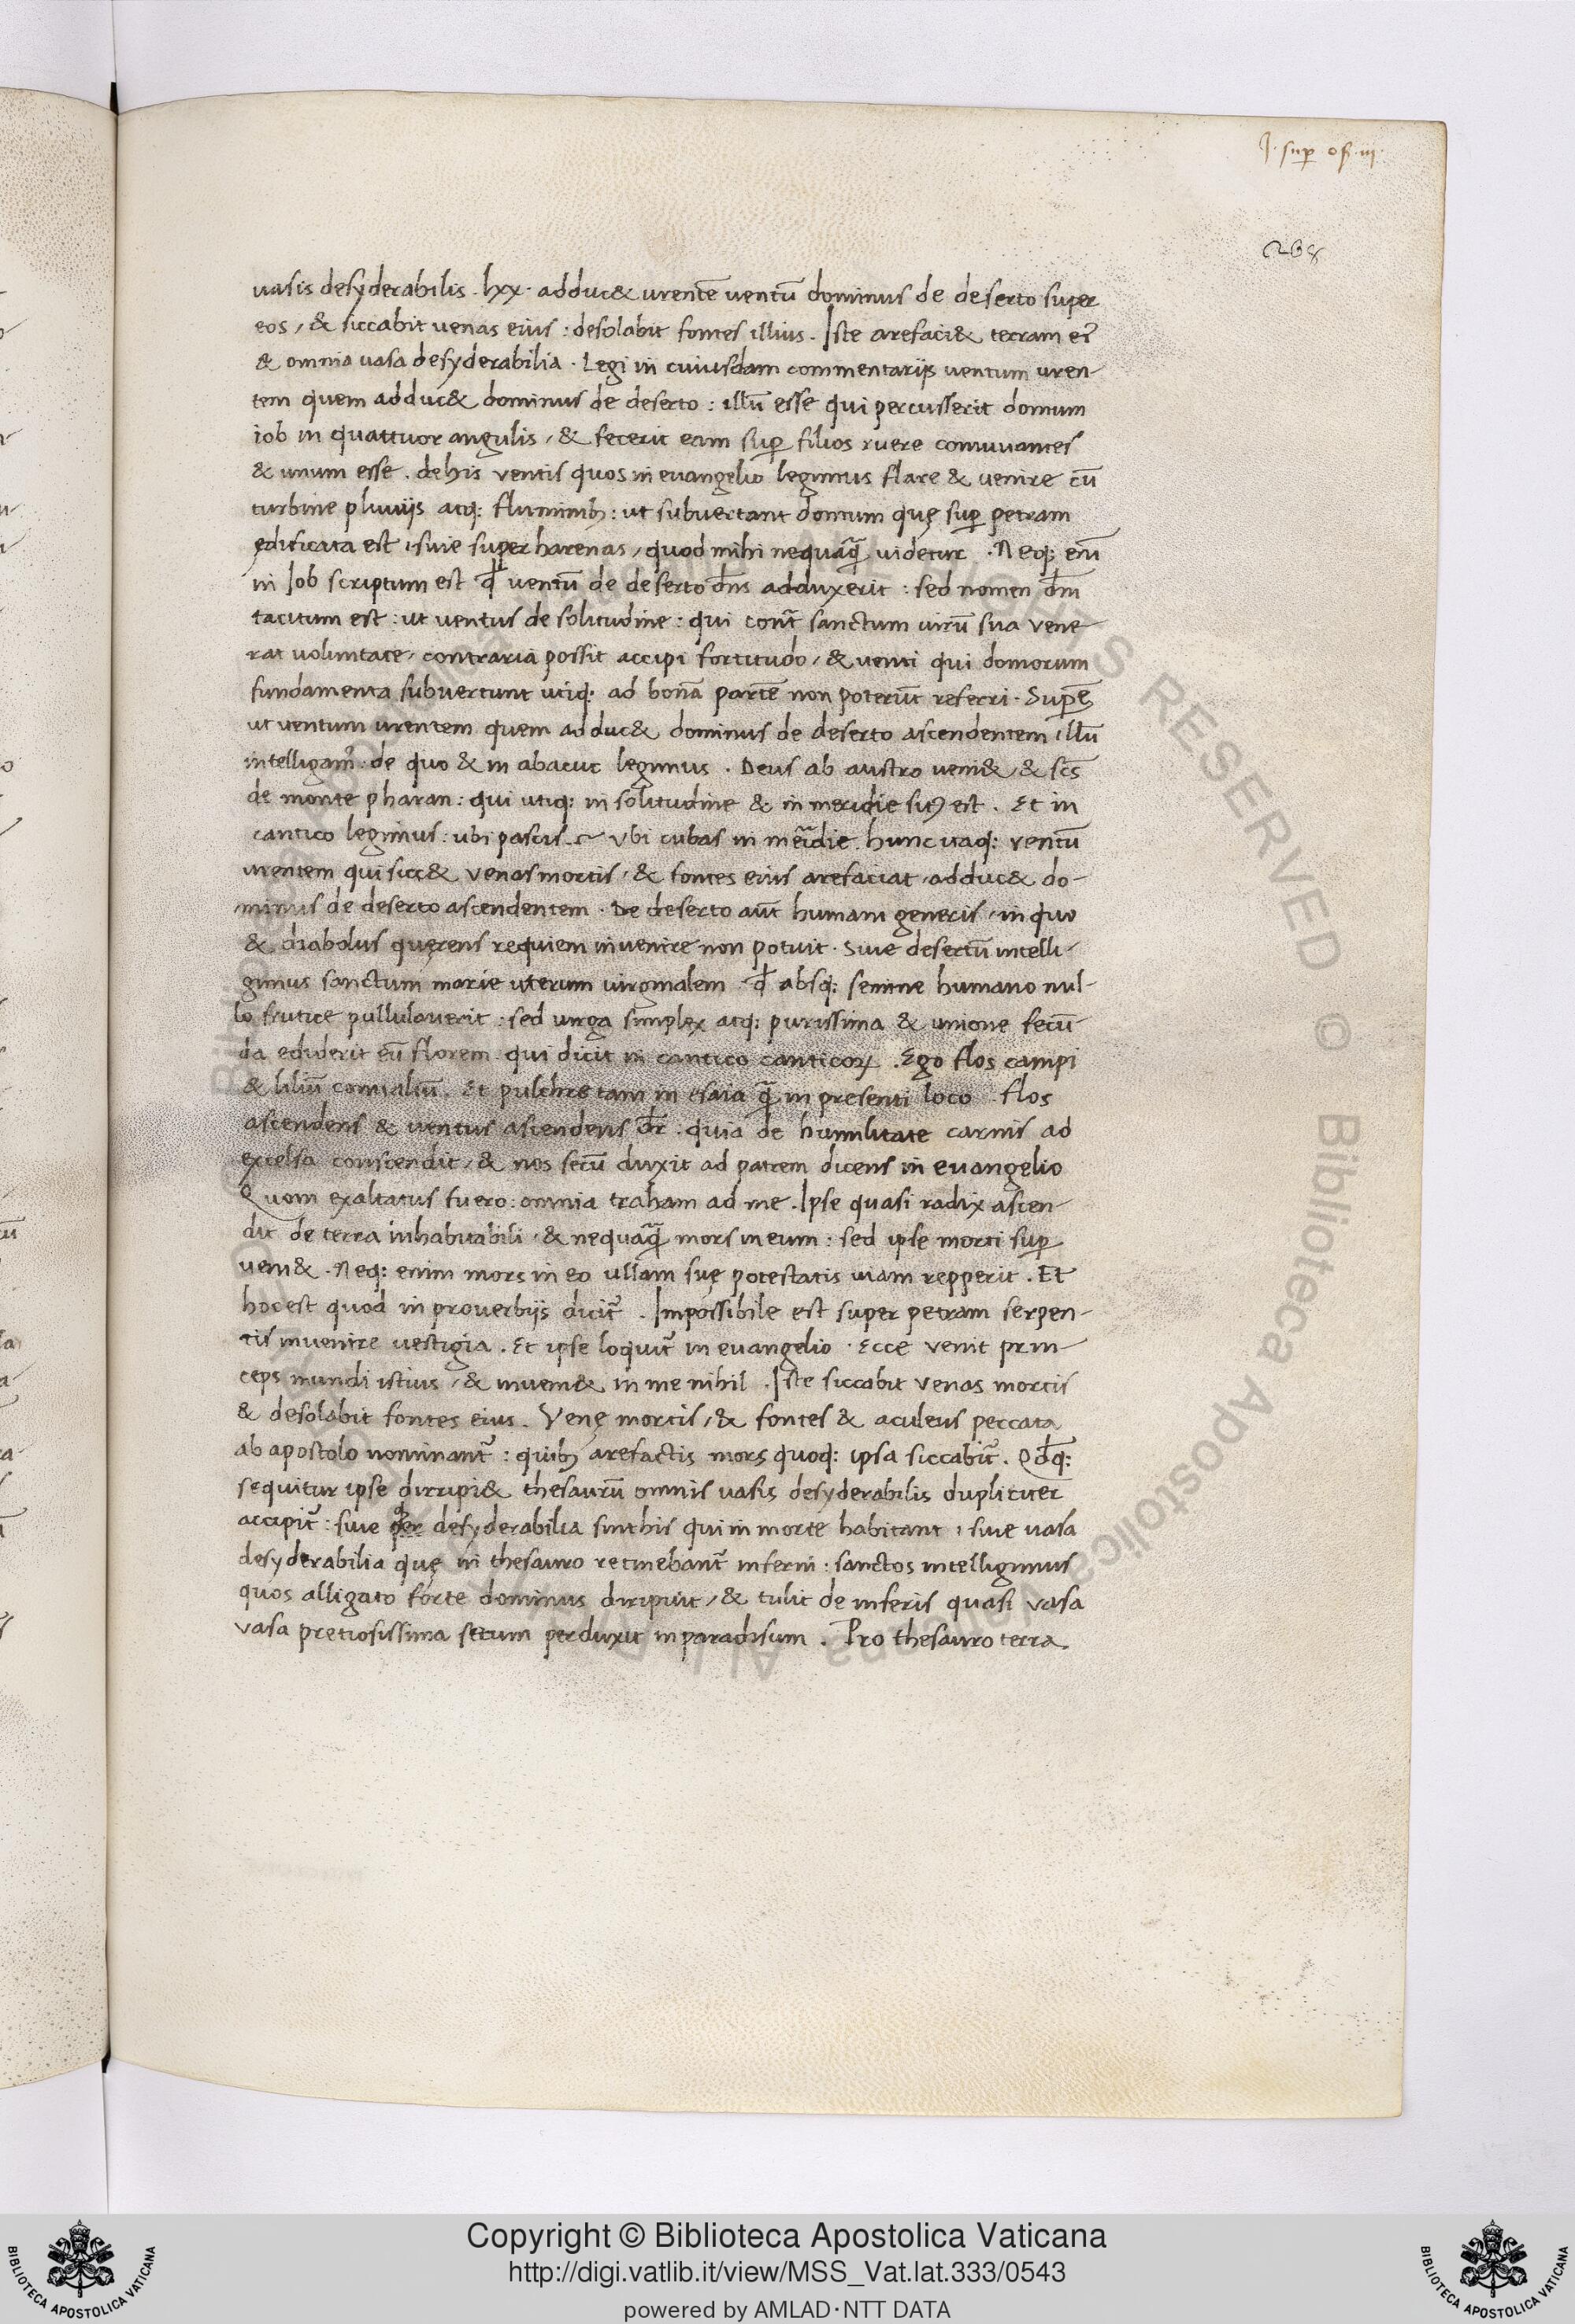 J. sup os. iii.
268
vasis desyderabilis. lxx. adduc& urentē ventū dominus de deserto super
eos, & siccabit venas eius: desolabit fontes illius. Iste arefaci& terram ei᷒
& omnia vasa desyderabilia. Legi in cuiusdam commentarijs ventum uren-
tem quem adduc& dominus de deserto: illū esse qui percusserit domum
iob in quattuor angulis, & fecerit eam suꝑ filios ruere convivantes
& unum esse. de his ventis quos in evangelio legimus flare & venire cū
turbine pluvijs atq: fluminibꝫ: ut subvertant domum quę suꝑ petram
ędificata est, sive super harenas, quod mihi nequaq̃ videtur. Neq: enī
in Iob scriptum est ꝙ ventū de deserto dn̄s adduxerit: sed nomen dn̄i
tacitum est: ut ventus de solitudine: qui cont̃ sanctum virū sua vene-
rat voluntate, contraria possit accipi fortitudo, & venti qui domorum
fundamenta subvertunt utiq: ad bonā partē non poterūt referri. Superē
ut ventum urentem quem adduc& dominus de deserto ascendentem illū
intelligam᷒: de quo & in abacuc legimus. Deus ab austro veni& & scs̄
de monte pharan: qui utiq: in solitudine & in meridie sitꝰ est. Et in
cantico legimus: ubi pascis ubi cubas in meridie. hunc itaq: ventū
urentem qui sicc& venas mortis, & fontes eius arefaciat, adduc& do-
minus de deserto ascendentem. De deserto aūt humani generis, in quo
& diabolus quęrens requiem invenire non potuit. Sive desertū intelli-
gimus sanctum marie uterum virginalem ꝙ absq: semine humano nul-
lo frutice pullulaverit: sed virga simplex atq: purissima & unione fecū-
da ediderit eū florem qui dicit in cantico canticoꝝ. Ego flos campi
& liliū convaliū. Et pulchre tam in esaia q̃ in presenti loco flos
ascendens & ventus ascendens dr̄. quia de humilitate carnis ad
excelsa conscendit, & nos secū duxit ad patrem dicens in evangelio
Quom exaltatus fuero: omnia traham ad me. Ipse quasi radix ascen-
dit de terra inhabitabili, & nequaq̃ mors in eum: sed ipse morti suꝑ
veni&. Neq: enim mors in eo ullam suę potestatis viam repperit. Et
hoc est quod in proverbijs dicit᷑. Impossibile est super petram serpen-
tis invenire vestigia. Et ipse loquit᷑ in evangelio. Ecce venit prin-
ceps mundi istius, & inveni& in me nihil. Iste siccabit venas mortis
& desolabit fontes eius. Venę mortis, & fontes & aculeus peccata
ab apostolo nominant᷑: quibꝫ arefactis mors quoq: ipsa siccabit᷑. Qd̄q:
sequitur ipse dirripi& thesaurū omnis vasis desyderabilis dupliciter
accipit᷑: sive desyderabilia sint his qui in morte habitant, sive vasa
desyderabilia quę in thesauro retinebant᷑ inferni: sanctos intelligimus
quos alligato forte dominus diripuit, & tulit de inferis quasi vasa
vasa pretiosissima secum perduxit in paradisum. Pro thesauro terra
Copyright © Biblioteca Apostolica Vaticana
http://digi.vatlib.it/view/MSS_Vat.lat.333/0543
powered by AMLAD·NTT DATA
BIBLIOTECA APOSTOLICA VATICANA
BIBLIOTECA APOSTOLICA VATICANA